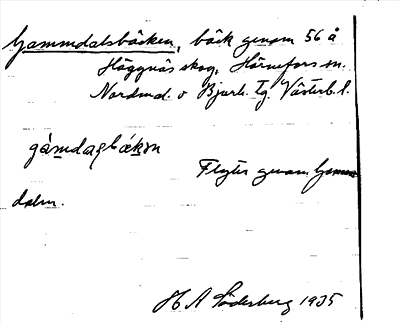 Gammdalsbäcken, bäck genom 56 å
Häggnäs skog, Hörnefors sn.
Nordmal. o Bjurh. Tg. Västerb. l.
gàmdaɐbǽkən
Flyter genom Gamm
dalen.
H A Söderberg 1935